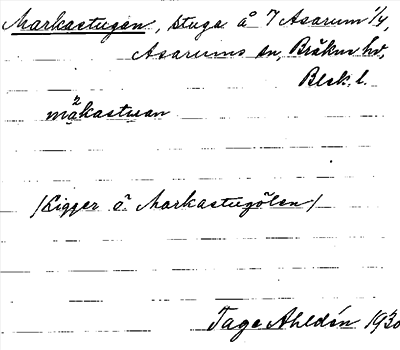 Markastugan, stuga å 7 Asarum 1/4,
Asarums sn, Bräkne hd,
Blek. l.
2
målkastuan
/Ligger å Markastugölen/
Tage Ahldén 1930